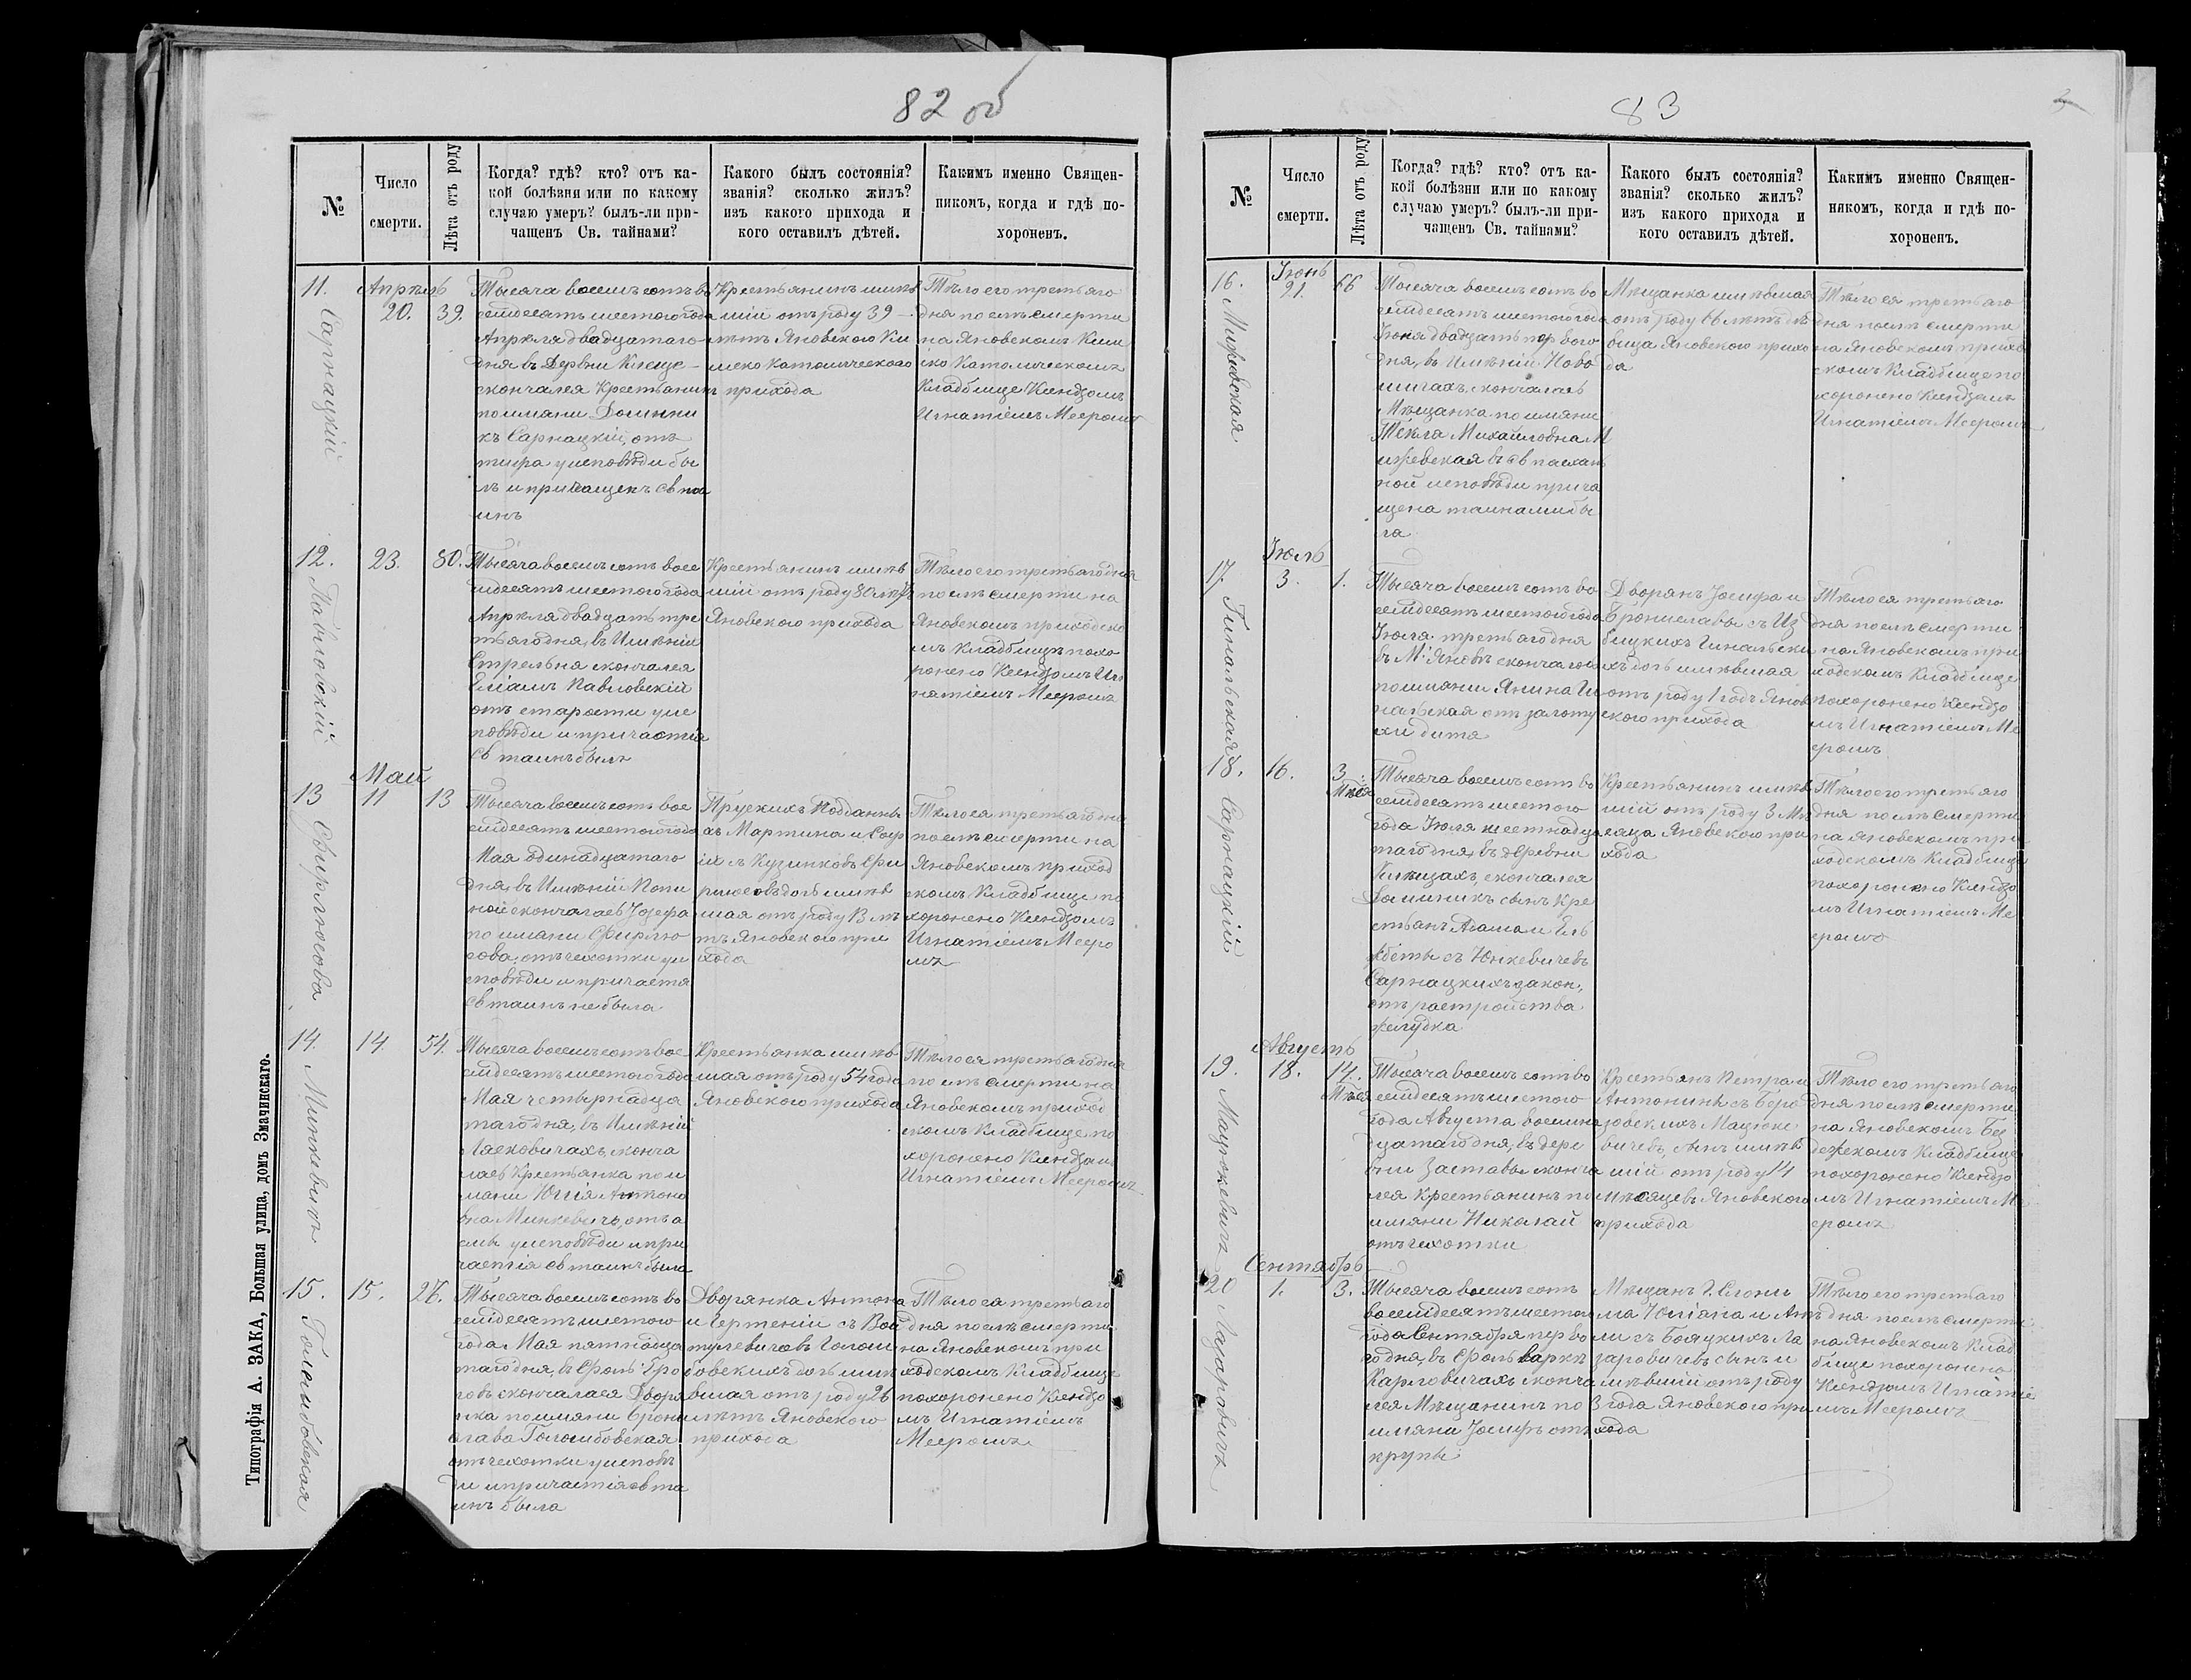 82 об
№
Число
смерти.
Лѣта отъ роду
Когда? гдѣ? кто? отъ ка-
кой болѣзни или по какому
случаю умеръ? былъ-ли при-
чащенъ Св. тайнами?
Какого былъ состоянія?
званія? сколько жилъ?
изъ какого прихода и
кого оставилъ дѣтей.
Какимъ именно Священ-
никомъ, когда и гдѣ по-
хороненъ.
11.
Сарнацкій
Апрѣль
20.
39.
Тысяча восемьсотъ во
семдесятъ шестого года
Апрѣля двадцатаго
дня въ Дервни Клеще
скончался Крестьянинъ
по имяни Домини
къ Сарнацкій, отъ
тифа у исповѣди бы
лъ и причащенъ Св таи
инъ
Крестьянинъ имѣв
шій отъ роду 39
лѣтъ Яновского Ри
меко Католического
прихода
Тѣло его третьяго
дня послѣ смерти
на Яновскомъ Рим
ско Католическомъ
Кладбище Ксендзомъ
Игнатіемъ Мееромъ
12.
Павловскій
23.
80.
Тысяча восемьсотъ восе
мдесятъ шестого года
Апрѣля двадцать тре
тьяго дня, въ Имѣніи
Стрельня скончался
Еліашъ Павловскій
отъ старости у ис
повѣди и причастія
Св таинъ былъ
Крестьянинъ имѣв
шій отъ роду 80 лѣтъ
Яновского прихода
Тѣло его третьяго дня
послѣ смерти на
Яновскомъ приходско
мъ Кладбищѣ похо
ронено Ксендзомъ Иг
натіемъ Мееромъ
13
Сфирлюсова
Май
11
13
Тысяча восемьсотъ вос
емдесятъ шестого года
Мая одинадцатаго
дня, въ Имѣніи Попи
ной скончалась Іозефа
по имяни Сфирлю
сова, отъ чехотки у и
сповѣди и причастя
Св таинъ не была
Прускихъ Подданны
хъ Мартина и Соф
іи съ Кузинковъ Сфи
рлюсовъ дочь имѣв
шая отъ роду 13 лѣ
тъ Яновского при
хода
Тѣло ея третьяго дня
послѣ смерти на
Яновскомъ приход
скомъ Кладбище по
хоронено Ксендзомъ
Игнатіемъ Мееро
мъ
14.
Минкевичъ
14
54.
Тысяча восемьсотъ вос
емдесятъ шестого года
Мая четырнадца
таго дня, въ Имѣніи
Лясковичахъ, сконча
лась Крестьянка по и
мяни Юлія Антоно
вна Минкевичъ, отъ а
смы у исповѣди и при
частія св таинъ была
Крестьянка имѣв
шая отъ роду 54 года
Яновского прихода
Тѣло ея третьяго дня
послѣ смерти на
Яновскомъ приход
скомъ Кладбище по
хоронено Ксендзомъ
Игнатіемъ Мееромъ
15.
Голомбовская
15.
26.
Тысяча восемьсотъ во
семдесятъ шестого
года Мая пятнадца
таго дня, въ Фоль: Гро
говъ скончалася Дворя
нка по имяни Брони
слава Голомбовская
отъ чехотки у исповѣ
ди и причастія св та
инъ была
Дворянка Антона
и Гертеніи съ Вой
тулевичовъ Голом
бовскихъ дочь имѣ
вшая отъ роду 26
лѣтъ Яновского
прихода
Тѣло ея третьяго
дня послѣ смерти
на Яновскомъ при
ходскомъ Кладбище
похоронено Ксендзо
мъ Игнатіемъ
Мееромъ
Типографія А. ЗАКА, Большая улица, домъ Змачинскаго.
83
№
Число
смерти.
Лѣта отъ роду
Когда? гдѣ? кто? отъ ка-
кой болѣзни или по какому
случаю умеръ? былъ-ли при-
чащенъ Св. тайнами?
Какого былъ состоянія?
званія? сколько жилъ?
изъ какого прихода и
кого оставилъ дѣтей.
Какимъ именно Священ-
никомъ, когда и гдѣ по-
хороненъ.
16.
Июнь
21.
66
Тысяча восемьсотъ во
семдесятъ шестого года
Июня двадцать первого
дня, въ Имѣніи Ново
шигахъ скончалась
Мѣщанка по имяни
Текля Михайловна М
ижевская
ной исповѣди прича
щена таинами бы
ла
Мѣщанка имѣвшая
отъ роду 66 лѣтъ дѣ
вица Яновского прихо
да
Тѣло ея третьяго
дня послѣ смерти
на Яновскомъ прихо
скомъ Кладбище по
хоронено Ксендзомъ
Игнатіемъ Мееромъ
17.
Гинальская
Июль
3.
1.
Тысяча восемьсотъ во
семдесятъ шестого года
Июля третьяго дня
въ М: Яновъ скончалась
по имяни Янина Ги
нальская отъ золоту
хи дитя
Дворянъ Іосифа и
Брониславы съ Из
бицкихъ Гинальски
хъ дочь имѣвшая
отъ роду 1 годъ Янов
ского прихода
Тѣло ея третьяго
дня послѣ смерти
на Яновскомъ при
ходскомъ Кладбище
похоронено Ксендзо
мъ Игнатіемъ Ме
еромъ
18.
Сарнацкій
16.
3
Мѣся
Тысяча восемьсотъ во
семдесятъ шестого
года Июля шестнадца
таго дня, въ деревни
Клещахъ, скончался
Доминикъ сынъ Кре
стьянъ Адама и Ель
жбеты съ Юнкевичевъ
Сарнацкихъ закон.,
отъ растройства
желудка
Крестьянинъ имѣв
шій отъ роду 3 Мѣ
сяца Яновского при
хода
Тѣло его третьяго
дня послѣ смерти
на Яновскомъ при
ходскомъ Кладбище
похоронено Ксендзо
мъ Игнатіемъ Ме
еромъ
19.
Мацюкевичъ
Августъ
18.
14.
Мѣся
Тысяча восемьсотъ во
семдесятъ шестого
года Августа восемна
дцатаго дня, въ дере
вни Заставье сконча
лся Крестьянинъ по
имяни Николай
отъ чехотки
Крестьянъ Петра и
Антонины съ Бере
зовскихъ Мацюке
вичевъ, сынъ имѣв
шій отъ роду 14
мѣсяцевъ Яновского
прихода
Тѣло его третьяго
дня послѣ смерти
на Яновскомъ Без
дежскомъ Кладбище
похоронено Ксендзо
мъ Игнатіемъ Ме
еромъ
20
Лазаровичъ
Сентябрь
1.
3.
Тысяча восемьсотъ
восемдесятъ шестого
года Сентября перво
го дня, въ Фольваркѣ
Карловичахъ сконча
лся Мѣщанинъ по
имяни Іосифъ отъ
крупы
Мѣщанъ Г. Слони
ма Юліана и Анѣ
ли съ Бояцкихъ Ла
заровичевъ сынъ и
мѣвшій отъ роду
3 года Яновского при
хода
Тѣло его третьяго
дня послѣ смерти
на Яновскомъ Клад
бище похоронено
Ксендзомъ Игнатіе
мъ Мееромъ